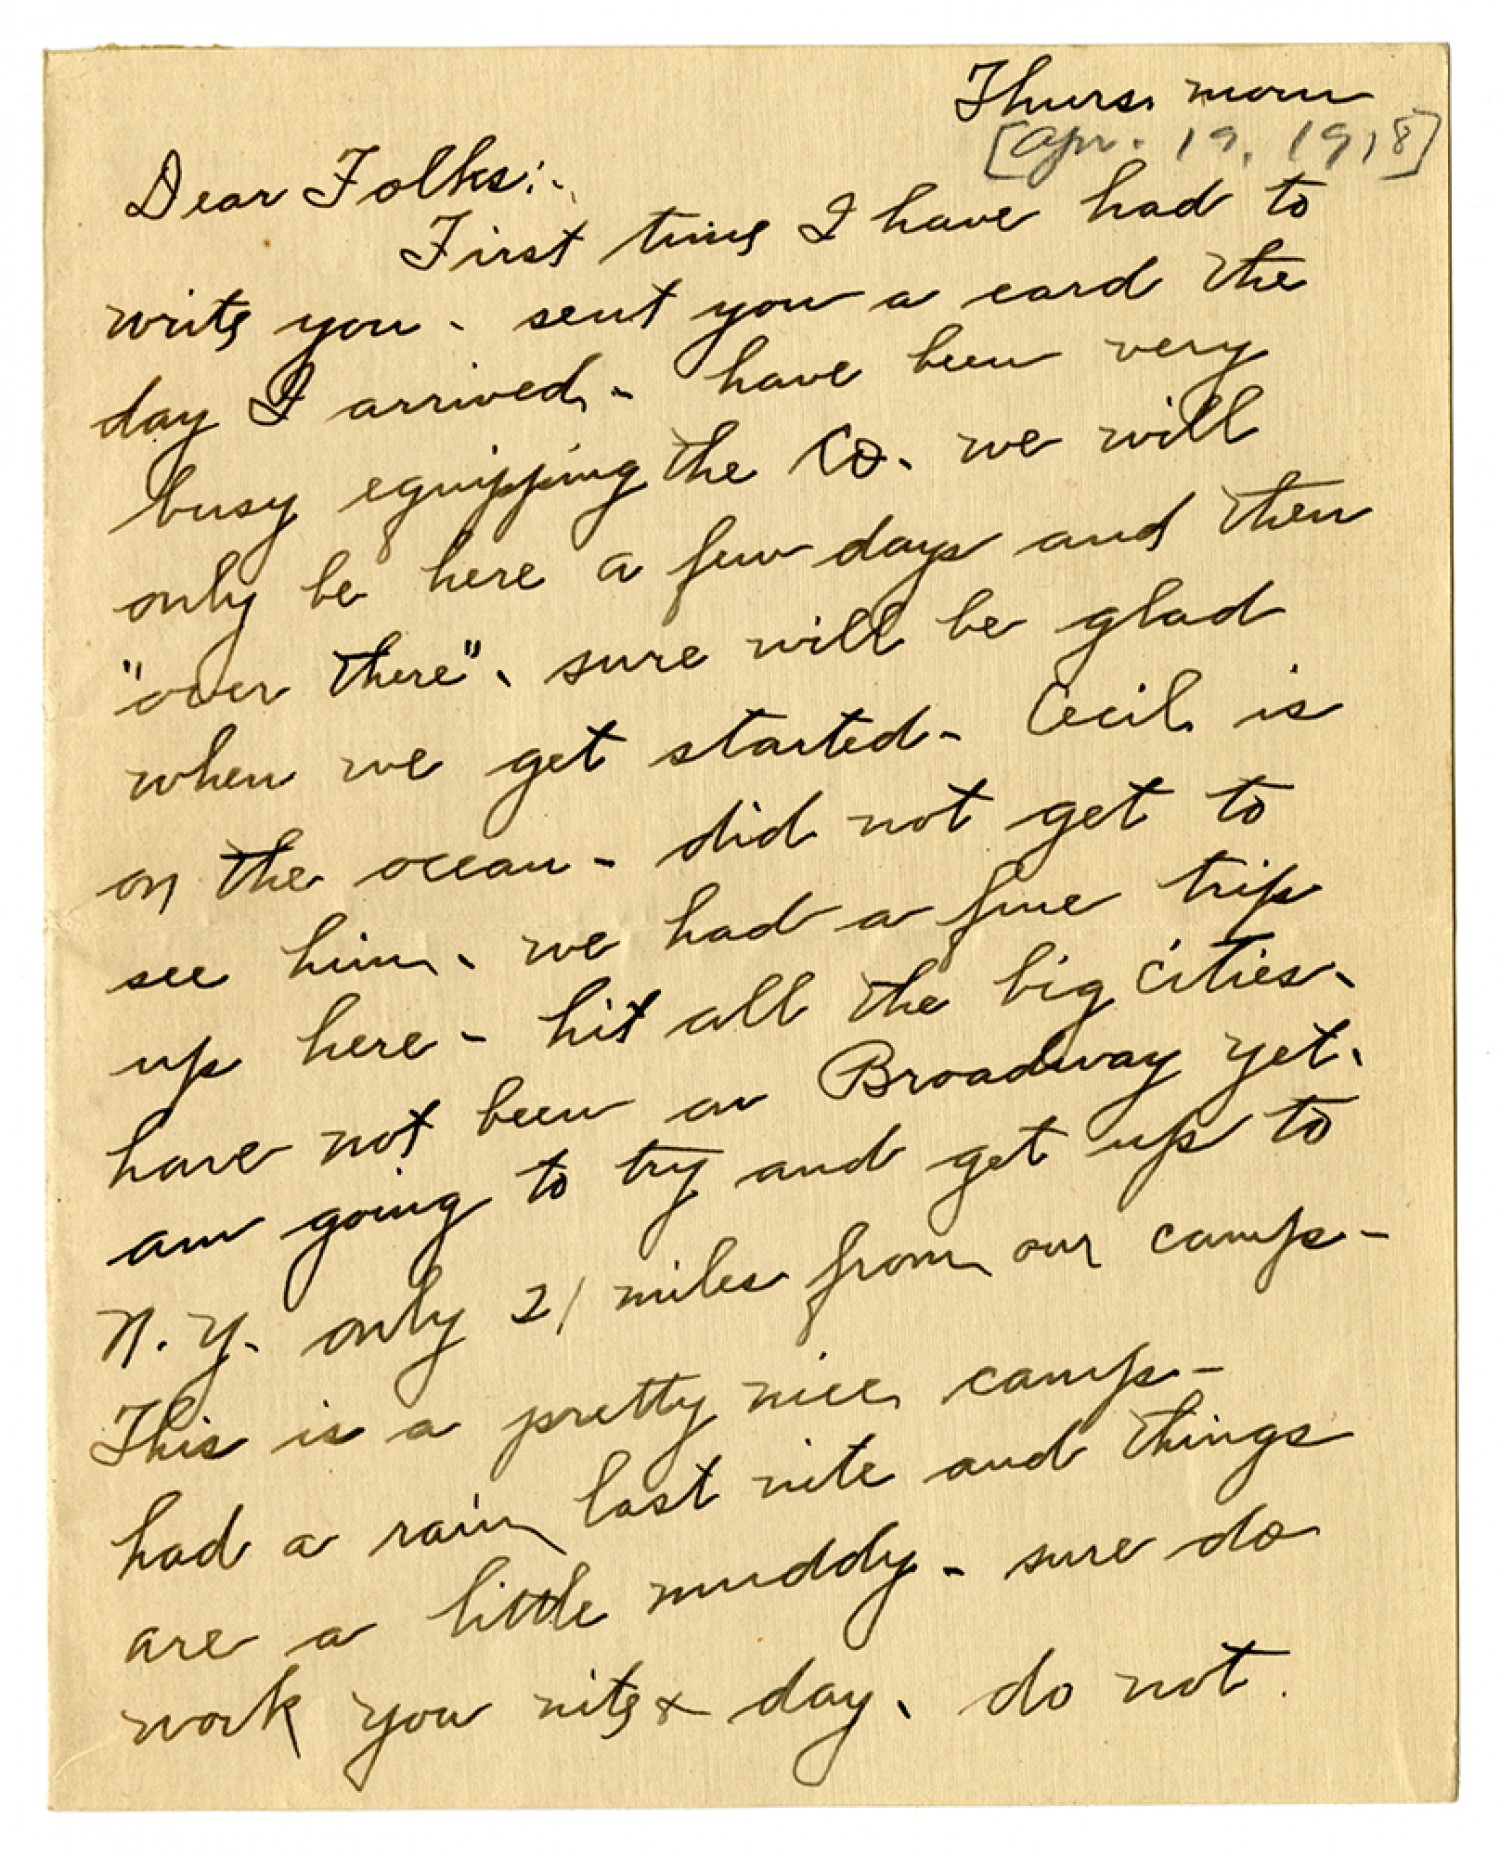 Thurs. morn
[Apr. 19, 1918]
Dear Folks:-
First time I have had to
write you - sent you a card the
day I arrived - have been very
busy equipping the Co. we will
only be here a few days and then
"over there". sure will be glad
when we get started - Cecil is
on the ocean - did not get to
see him. we had a fine trip
up here - hit all the big cities.
have not been on Broadway yet.
am going to try and get up to
N.Y. only 21 miles from our camp -
This is a pretty nice camp -
had a rain last nite and things
are a little muddy - sure do
work you nite & day. do not